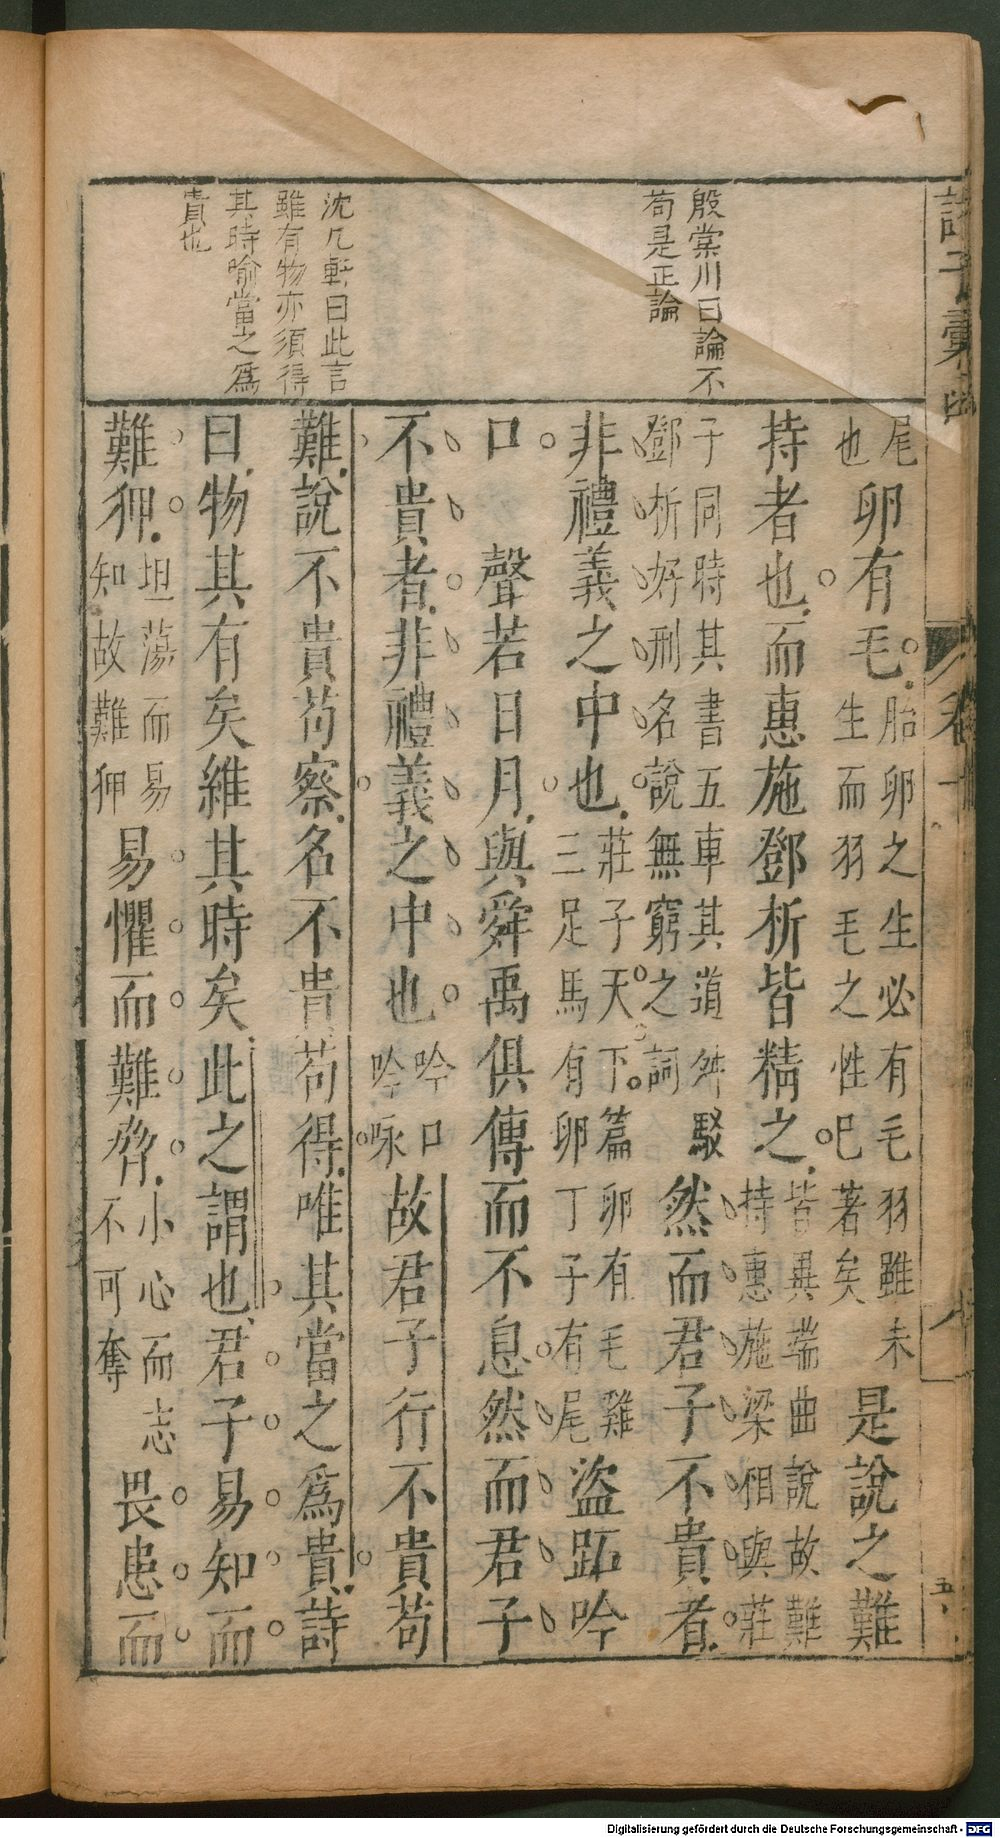 諸子彙函
卷十
五
殷棠川曰論不
苟是正論
沈几軒曰此言
雖有物亦須得
其時喻當之爲
貴也
尾
也
卵有毛
胎卵之生必有毛羽雖未
生而羽毛之性已著矣
是說之難
持者也而惠施鄧析皆精之
皆異端曲說故難
持惠施梁相與莊
子同時其書五車其道舛駁
鄧析好刑名說無窮之詞
然而君子不貴者
非禮義之中也
莊子天下篇卵有毛雞
三足馬有卵丁子有尾
盜跖吟
口 聲若日月與舜禹俱傳而不息然而君子
不貴者非禮義之中也
吟口
吟咏
故君子行不貴苟
難說不貴苟察名不貴苟得唯其當之爲貴詩
曰物其有矣維其時矣此之謂也君子易知而
難狎
坦蕩而易
知故難狎
易懼而難脅
小心而志
不可奪
畏患而
Digitalisierung gefördert durch die Deutsche Forschungsgemeinschaft - DFG